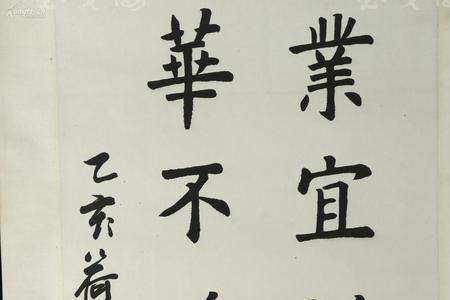 業宜
華不
乙亥荷